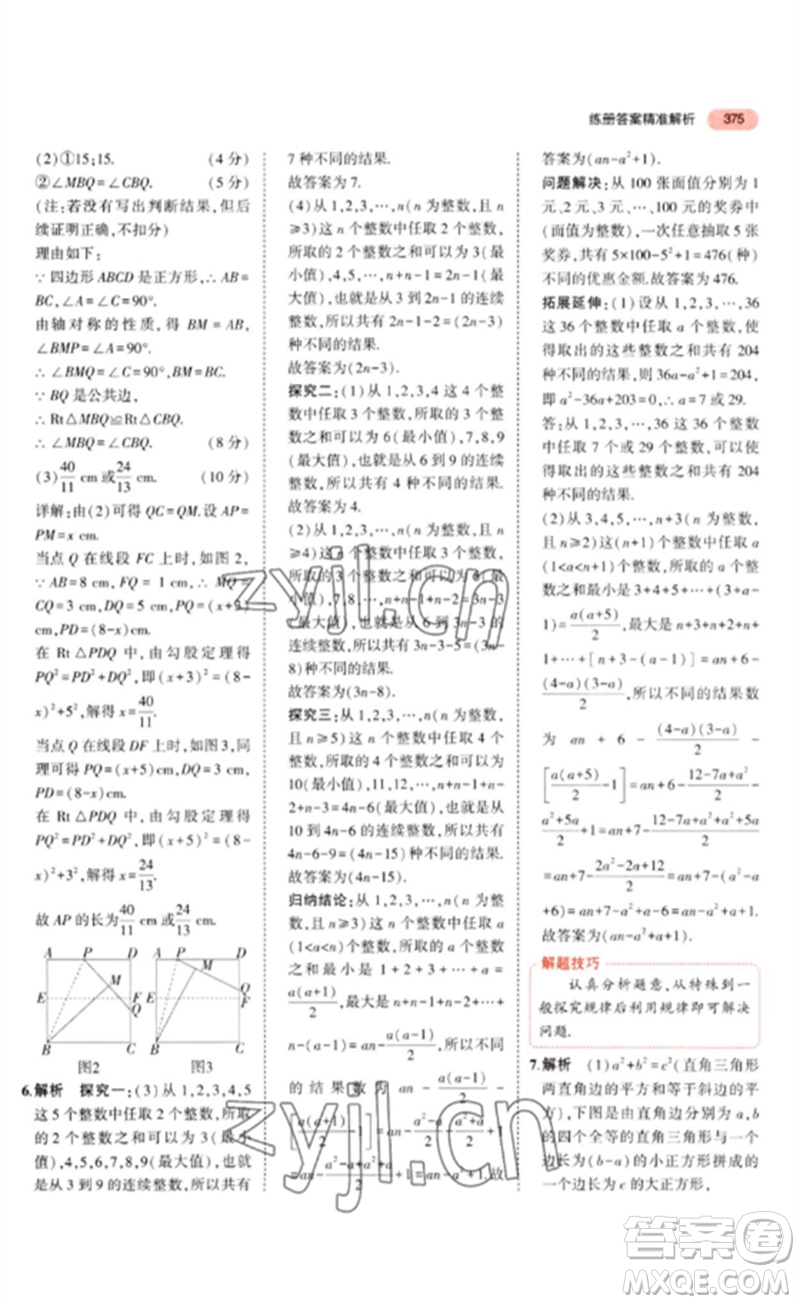 练册答案精准解析 375
(2)①15;15. (4分)
②∠MBQ=∠CBQ. (5分)
(注:若没有写出判断结果,但后
续证明正确,不扣分)
理由如下:
∵四边形 ABCD 是正方形,
∴AB=BC,∠A=∠C=90°.
由轴对称的性质,得 BM=AB,
∠BMP=∠A=90°.
∴∠BMQ=∠C=90°,BM=BC.
∵BQ 是公共边,
∴Rt△MBQ≌Rt△CBQ.
∴∠MBQ=∠CBQ. (8分)
(3)40/11 cm 或 24/13 cm. (10分)
详解:由(2)可得 QC=QM.设 AP=
PM=x cm.
当点 Q 在线段 FC 上时,如图 2,
∵AB=8 cm,FQ=1 cm,∴MQ=
CQ=3 cm,DQ=5 cm,PQ=(x+3)
cm,PD=(8-x) cm.
在 Rt△PDQ 中,由勾股定理得
PQ²=PD²+DQ²,即(x+3)²=(8-
x)²+5²,解得 x=40/11.
当点 Q 在线段 DF 上时,如图 3,同
理可得 PQ=(x+5) cm,PD=(8-
x) cm,DQ=3 cm.
在 Rt△PDQ 中,由勾股定理得
PQ²=PD²+DQ²,即(x+5)²=(8-
x)²+3²,解得 x=24/13.
故 AP 的长为 40/11 cm 或 24/13 cm.
A P D
M
E F
Q
B C
图2
A P D
M
Q
E F
B C
图3
6.解析 探究一:(3)从 1,2,3,4,5
这 5 个整数中任取 2 个整数,所取的
2 个整数之和可以为 3(最小
值),4,5,6,7,8,9(最大值),也就
是从 3 到 9 的连续整数,所以共有
7 种不同的结果.
故答案为 7.
(4)从 1,2,3,…,n(n 为整数,且 n
≥3)这 n 个整数中任取 2 个整数,
所取的 2 个整数之和可以为 3(最
小值),4,5,…,n+n-1=2n-1(最大
值),也就是从 3 到 2n-1 的连续
整数,所以共有 2n-1-2=(2n-3)
种不同的结果.
故答案为(2n-3).
探究二:(1)从 1,2,3,4 这 4 个整
数中任取 3 个整数,所取的 3 个整
数之和可以为 6(最小值),7,8,9
(最大值),也就是从 6 到 9 的连续
整数,所以共有 4 种不同的结果.
故答案为 4.
(2)从 1,2,3,…,n(n 为整数,且 n
≥4)这 n 个整数中任取 3 个整数,
所取的 3 个整数之和可以为 6(最小
值),7,8,…,n+n-1+n-2=3n-3
(最大值),也就是从 6 到 3n-3 的
连续整数,所以共有 3n-3-5=(3n-
8)种不同的结果.
故答案为(3n-8).
探究三:从 1,2,3,…,n(n 为整数,
且 n≥5)这 n 个整数中任取 4 个
整数,所取的 4 个整数之和可以为
10(最小值),11,12,…,n+n-1+n-
2+n-3=4n-6(最大值),也就是从
10 到 4n-6 的连续整数,所以共有
4n-6-9=(4n-15)种不同的结果.
故答案为(4n-15).
归纳结论:从 1,2,3,…,n(n 为整数,
且 n≥3)这 n 个整数中任取 a
(1<a<n)个整数,所取的 a 个整数
之和最小是 1+2+3+…+a=
a(a+1)/2,最大是 n+n-1+n-2+…+
n-(a-1)=an-a(a-1)/2,所以不同
的结果数为 an-a(a-1)/2-
[a(a+1)/2-1]=an-(a²-a)/2-(a²+a)/2+1
=an-(a²-a+a²+a)/2+1=an-a²+1.故
答案为(an-a²+1).
问题解决:从 100 张面值分别为 1
元、2 元、3 元、…、100 元的奖券中
(面值为整数),一次任意抽取 5 张
奖券,共有 5×100-5²+1=476(种)
不同的优惠金额.故答案为 476.
拓展延伸:(1)设从 1,2,3,…,36
这 36 个整数中任取 a 个整数,使
得取出的这些整数之和共有 204
种不同的结果,由题意得 36a-a²+1=204,
即 a²-36a+203=0,∴a=7 或 29.
答:从 1,2,3,…,36 这 36 个整数
中任取 7 个或 29 个整数,使得取
出的这些整数之和共有 204 种不
同的结果.
(2)从 3,4,5,…,n+3(n 为整数,且
n≥2)这(n+1)个整数中任取 a
(1<a<n+1)个整数,所取的 a 个整
数之和最小是 3+4+5+…+(a+2)
=a(a+5)/2,最大是 n+3+n+2+n+1
+…+[n+3-(a-1)]=an+6-
(4-a)(3-a)/2,所以不同的结果数
为 an+6-(4-a)(3-a)/2
-[a(a+5)/2-1]=an+6-(12-7a+a²)/2-
(a²+5a)/2+1=an+7-(12-7a+a²+a²+5a)/2
=an+7-(2a²-2a+12)/2=an+7-(a²-a
+6)=an+7-a²+a-6=an-a²+a+1.
故答案为(an-a²+a+1).
解题技巧
认真分析题意,从特殊到一
般探究规律后利用规律即可解决
问题.
7.解析 (1)a²+b²=c²(直角三角形
两直角边的平方和等于斜边的平
方),下图是由直角边分别为 a,b
的四个全等的直角三角形与一个
边长为(b-a)的小正方形拼成的
一个边长为 c 的大正方形,
zyjl.cn
zyjl.cn
答案圈
MXQE.COM